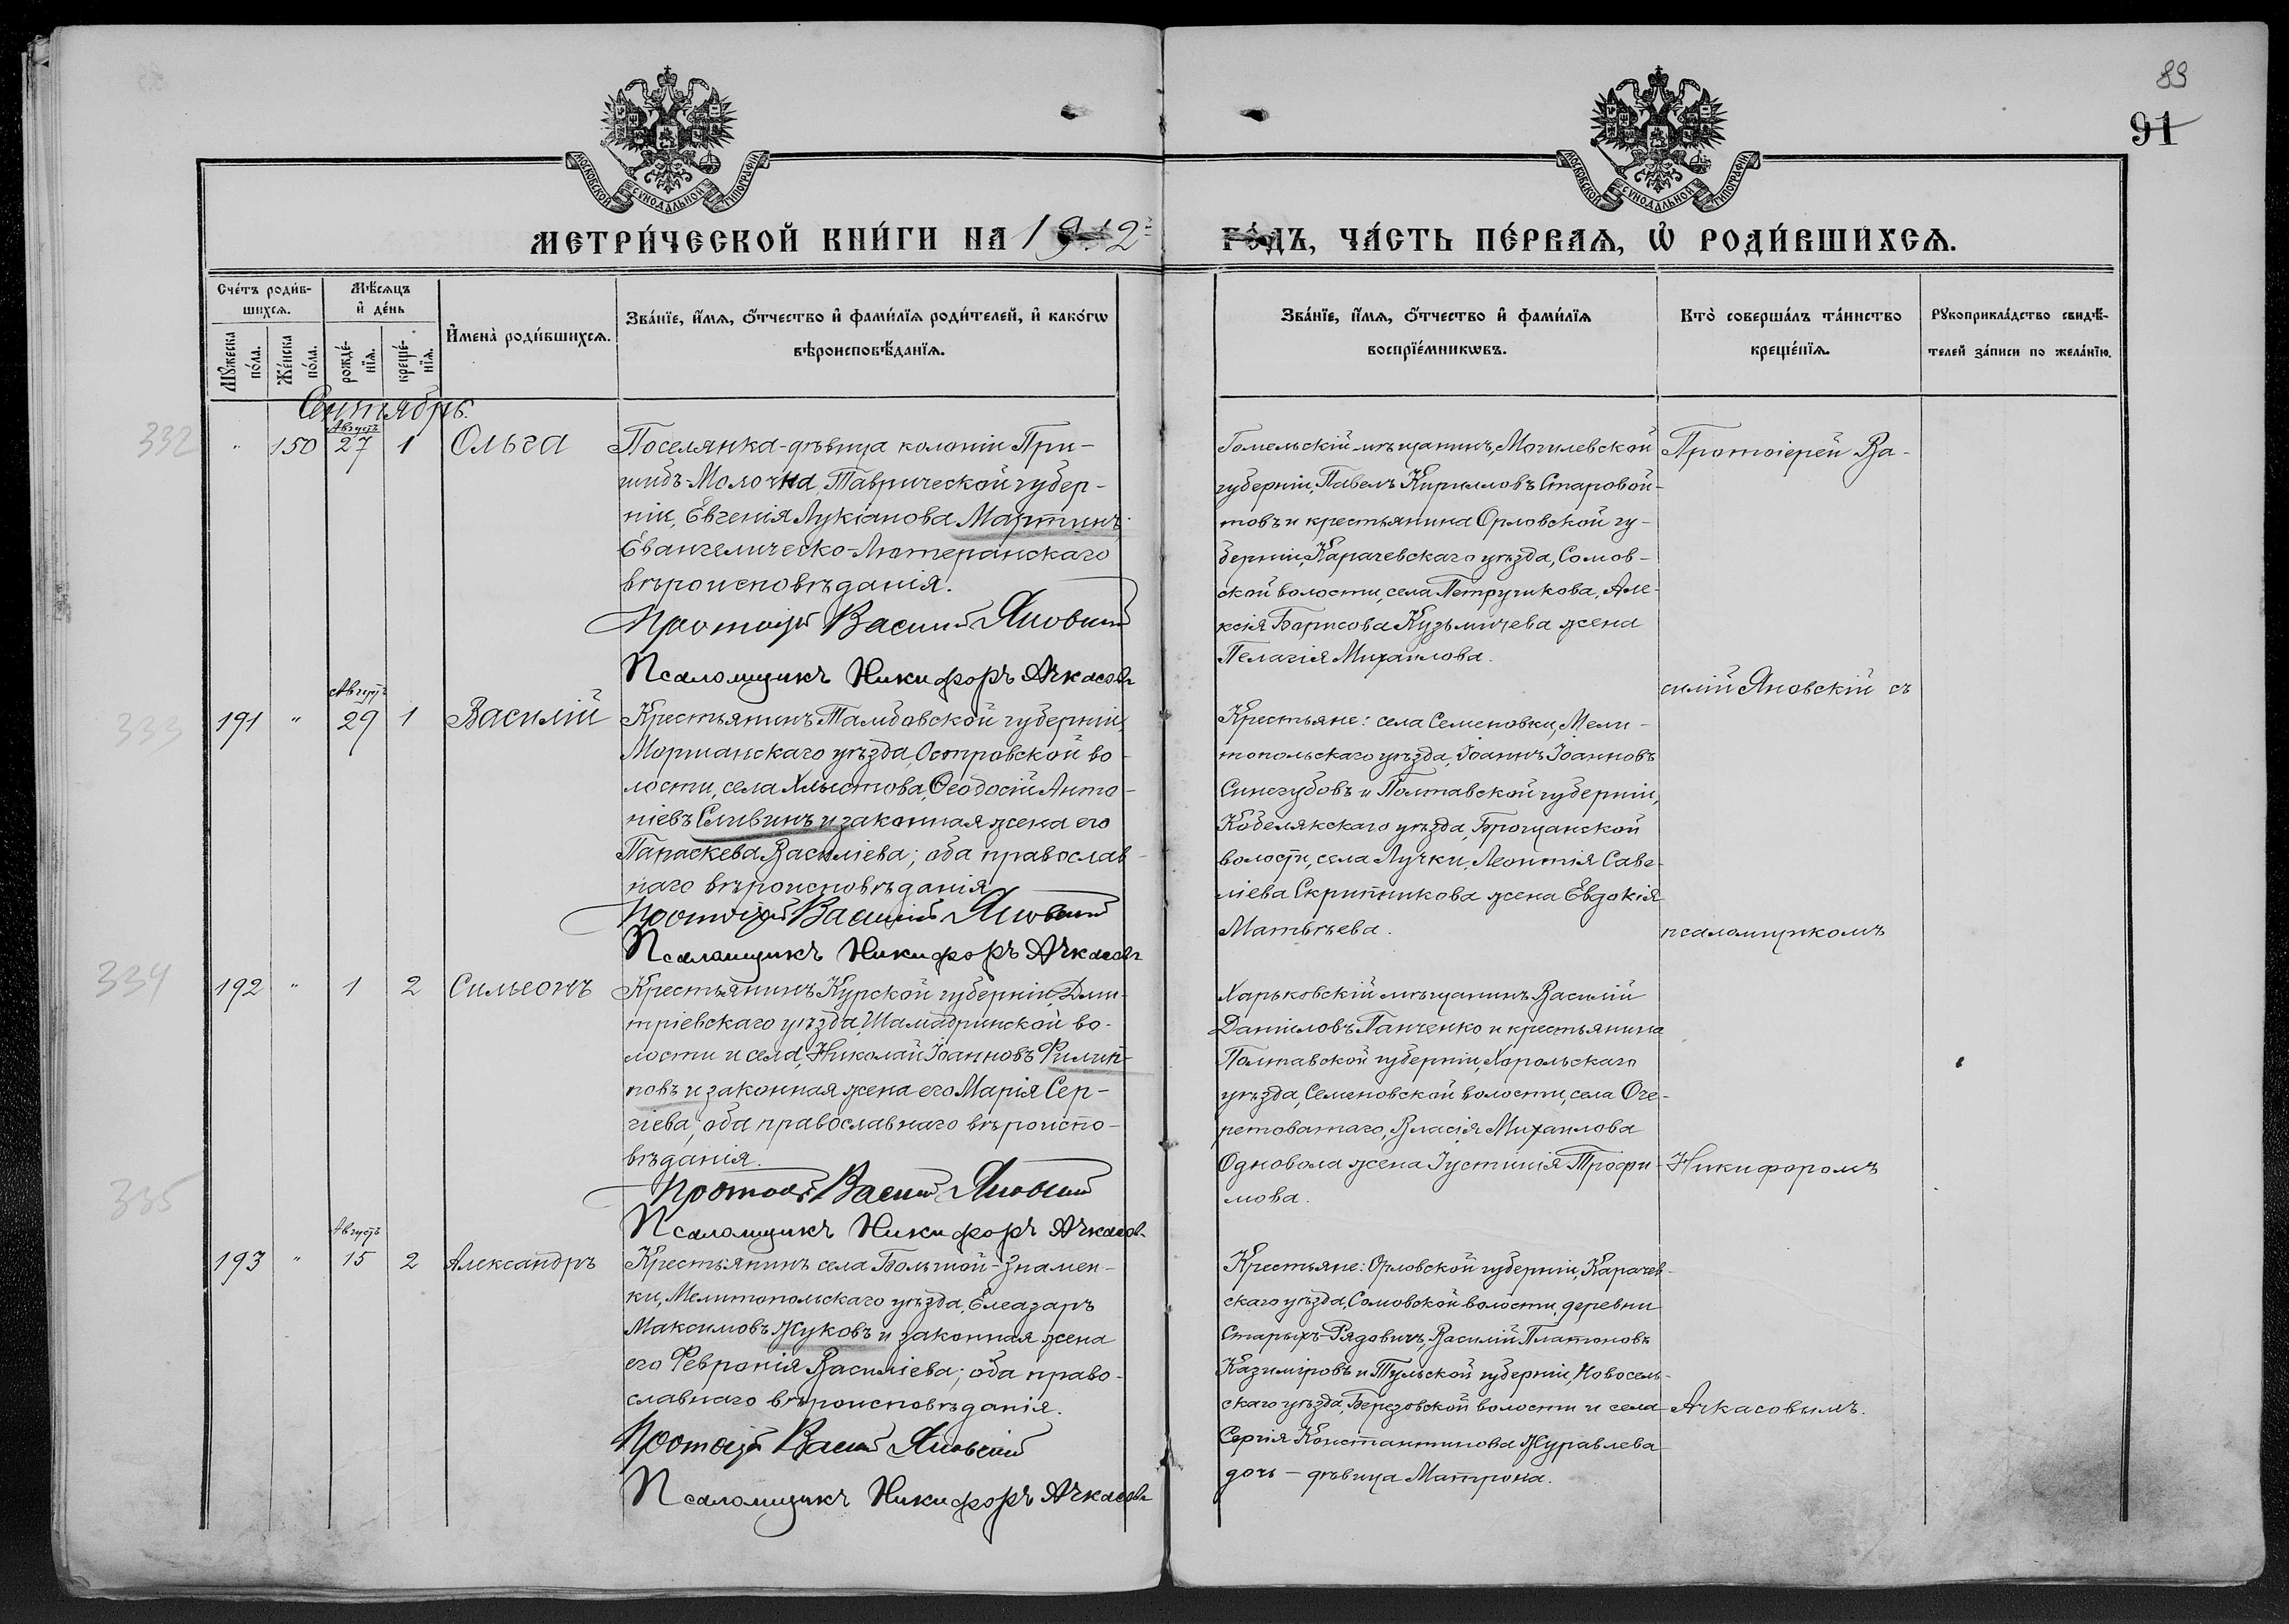 89
91
МОСКОВСКОЙ СУНОДАЛЬНОЙ ТИПОГРАФІИ
МОСКОВСКОЙ СУНОДАЛЬНОЙ ТИПОГРАФІИ
МЕТРИ́ЧЕСКОЙ КНИ́ГИ НА 1912й
ГО́ДЪ, ЧА́СТЬ ПЕ́РВАѦ, Ѡ҆ РОДИ́ВШИХСѦ.
Сче́тъ роди́в-
шихсѧ.
Мѣ́сѧцъ
и҆ де́нь
Мꙋ́жеска
по́ла.
Же́нска
по́ла.
рожде́-
нїѧ.
креще́-
нїѧ.
И҆мена̀ роди́вшихсѧ.
Зва́нїе, и҆́мѧ, ѻ҆́тчество и҆ фами́лїѧ роди́телей, и҆ како́гѡ
вѣроисповѣ́данїѧ.
Зва́нїе, и҆́мѧ, ѻ҆́тчество и҆ фами́лїѧ
воспрїе́мникѡвъ.
Кто̀ соверша́лъ та́инство
креще́нїѧ.
Рꙋкоприкла́дство свидѣ́-
телей за́писи по жела́нїю.
Сентябрь.
332
" 150 Августъ 27 1 Ольга
Поселянка-дѣвица колоніи При-
шибъ-Молочна, Таврической губер-
ніи, Евгенія Лукіанова Мартинъ,
Евангелическо-Лютеранскаго
вѣроисповѣданія.
Протоіерей Василій Яновскій
Псаломщикъ Никифоръ Ачкасовъ
Гомельскій мѣщанинъ, Могилевской
губерніи, Павелъ Кирилловъ Старовой-
товъ и крестьянина Орловской гу-
берніи, Карачевскаго уѣзда, Сомов-
ской волости, села Петрушкова, Але-
ксія Борисова Кузьмичева жена
Пелагія Михаилова.
Протоіерей Ва-
силій Яновскій съ
333
191 " Августъ 29 1 Василій
Крестьянинъ Тамбовской губерніи,
Моршанскаго уѣзда, Островской во-
лости, села Хлыстова, Ѳеодосій Анто-
ніевъ Сливинъ и законная жена его
Параскева Василіева; оба православ-
наго вѣроисповѣданія.
Протоіерей Василій Яновскій
Псаломщикъ Никифоръ Ачкасовъ
Крестьяне: села Семеновки, Мели-
топольскаго уѣзда, Іоаннъ Іоанновъ
Синегубовъ и Полтавской губерніи,
Кобелякскаго уѣзда, Брощанской
волости, села Лучки, Леонтія Саве-
ліева Скрипникова жена Евдокія
Матвѣева.
псаломщикомъ
334
192 " 1 2 Симеонъ
Крестьянинъ Курской губерніи, Дми-
тріевскаго уѣзда, Шамадринской во-
лости и села, Николай Іоанновъ Филип-
повъ и законная жена его Марія Сер-
гіева; оба православнаго вѣроиспо-
вѣданія.
Протоіерей Василій Яновскій
Псаломщикъ Никифоръ Ачкасовъ
Харьковскій мѣщанинъ Василій
Даниловъ Панченко и крестьянина
Полтавской губерніи, Хорольскаго
уѣзда, Семеновской волости, села Оче-
ретоватаго, Власія Михаилова
Одновола жена Іустинія Трофи-
мова.
Никифоромъ
335
193 " Августъ 15 2 Александръ
Крестьянинъ села Большой-Знамен-
ки, Мелитопольскаго уѣзда, Елеазаръ
Максимовъ Жуковъ и законная жена
его Февронія Василіева; оба право-
славнаго вѣроисповѣданія.
Протоіерей Василій Яновскій
Псаломщикъ Никифоръ Ачкасовъ
Крестьяне: Орловской губерніи, Карачев-
скаго уѣзда, Сомовской волости, деревни
Старыхъ-Рядовичъ, Василій Платоновъ
Казиміровъ и Тульской губерніи, Новосель-
скаго уѣзда, Березовской волости и села
Сергія Константинова Журавлева
дочь - дѣвица Матрона.
Ачкасовымъ.